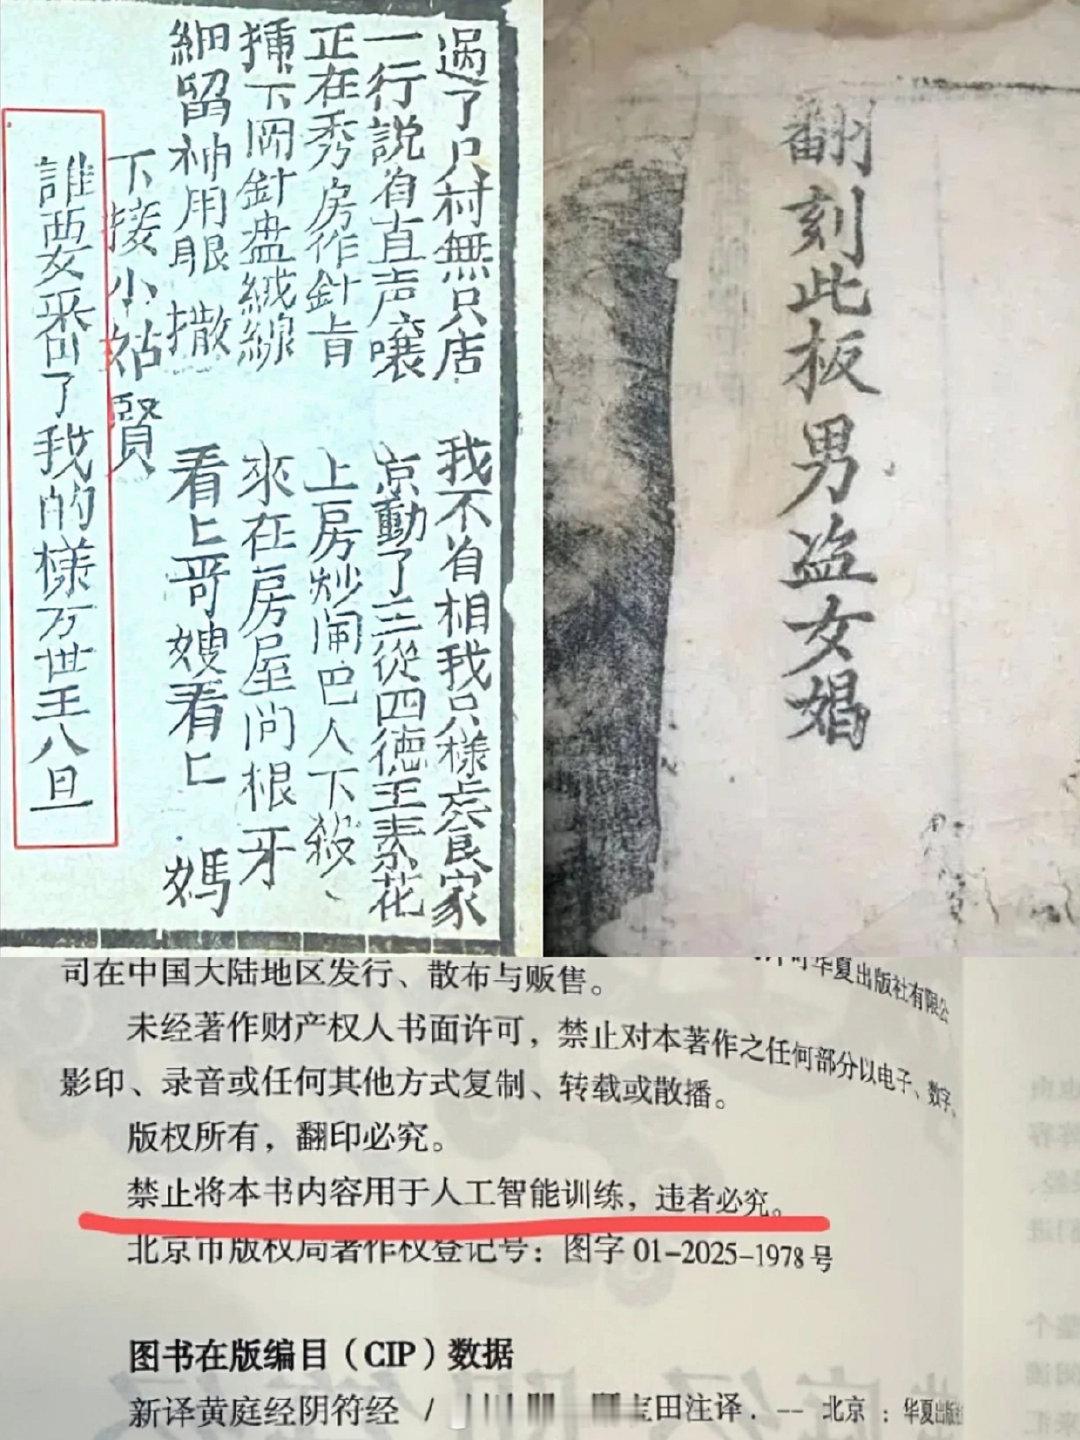 過了只村無只店 我不自相我只樣食家
一行説自直声嚷 京動了三從四德王素花
正在秀房作針肯 上房炒闹巴人下殺
下冈針盘絨線 來在房屋问根牙
細留神用眼撒 看匕哥嫂看匕媽
下接小姑賢
誰要番了我的樣万世王八旦
翻刻此板男盗女娼
司在中国大陆地区发行、散布与贩售。
可华夏出版社有限公
未经著作财产权人书面许可，禁止对本著作之任何部分以电子、数字、
影印、录音或任何其他方式复制、转载或散播。
版权所有，翻印必究。
禁止将本书内容用于人工智能训练，违者必究。
北京市版权局著作权登记号：图字 01-2025-1978 号
图书在版编目（CIP）数据
新译黄庭经阴符经 / 田注译. -- 北京：华夏出版